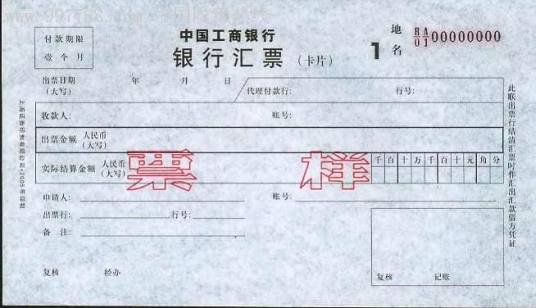 付款期限
壹个月
中国工商银行
银行汇票 (卡片) 1
地名
BA
01 00000000
出票日期
(大写) 年 月 日
代理付款行: 行号:
收款人: 账号:
出票金额 人民币
(大写)
实际结算金额 人民币
(大写)
千百十万千百十元角分
票样
申请人: 账号:
出票行: 行号:
备注:
复核 经办
复核 记账
此联出票行结清汇票时作汇出汇款借方凭证